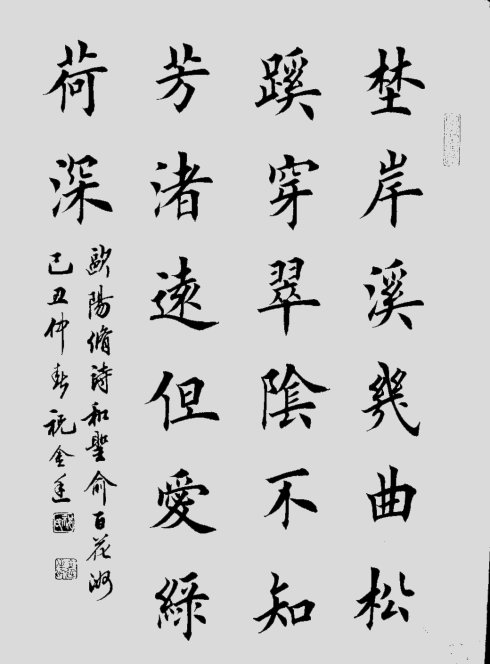 埜岸溪幾曲松
蹊穿翠陰不知
芳渚遠但愛綠
荷深
歐陽脩詩和聖俞百花洲
己丑仲春祝金